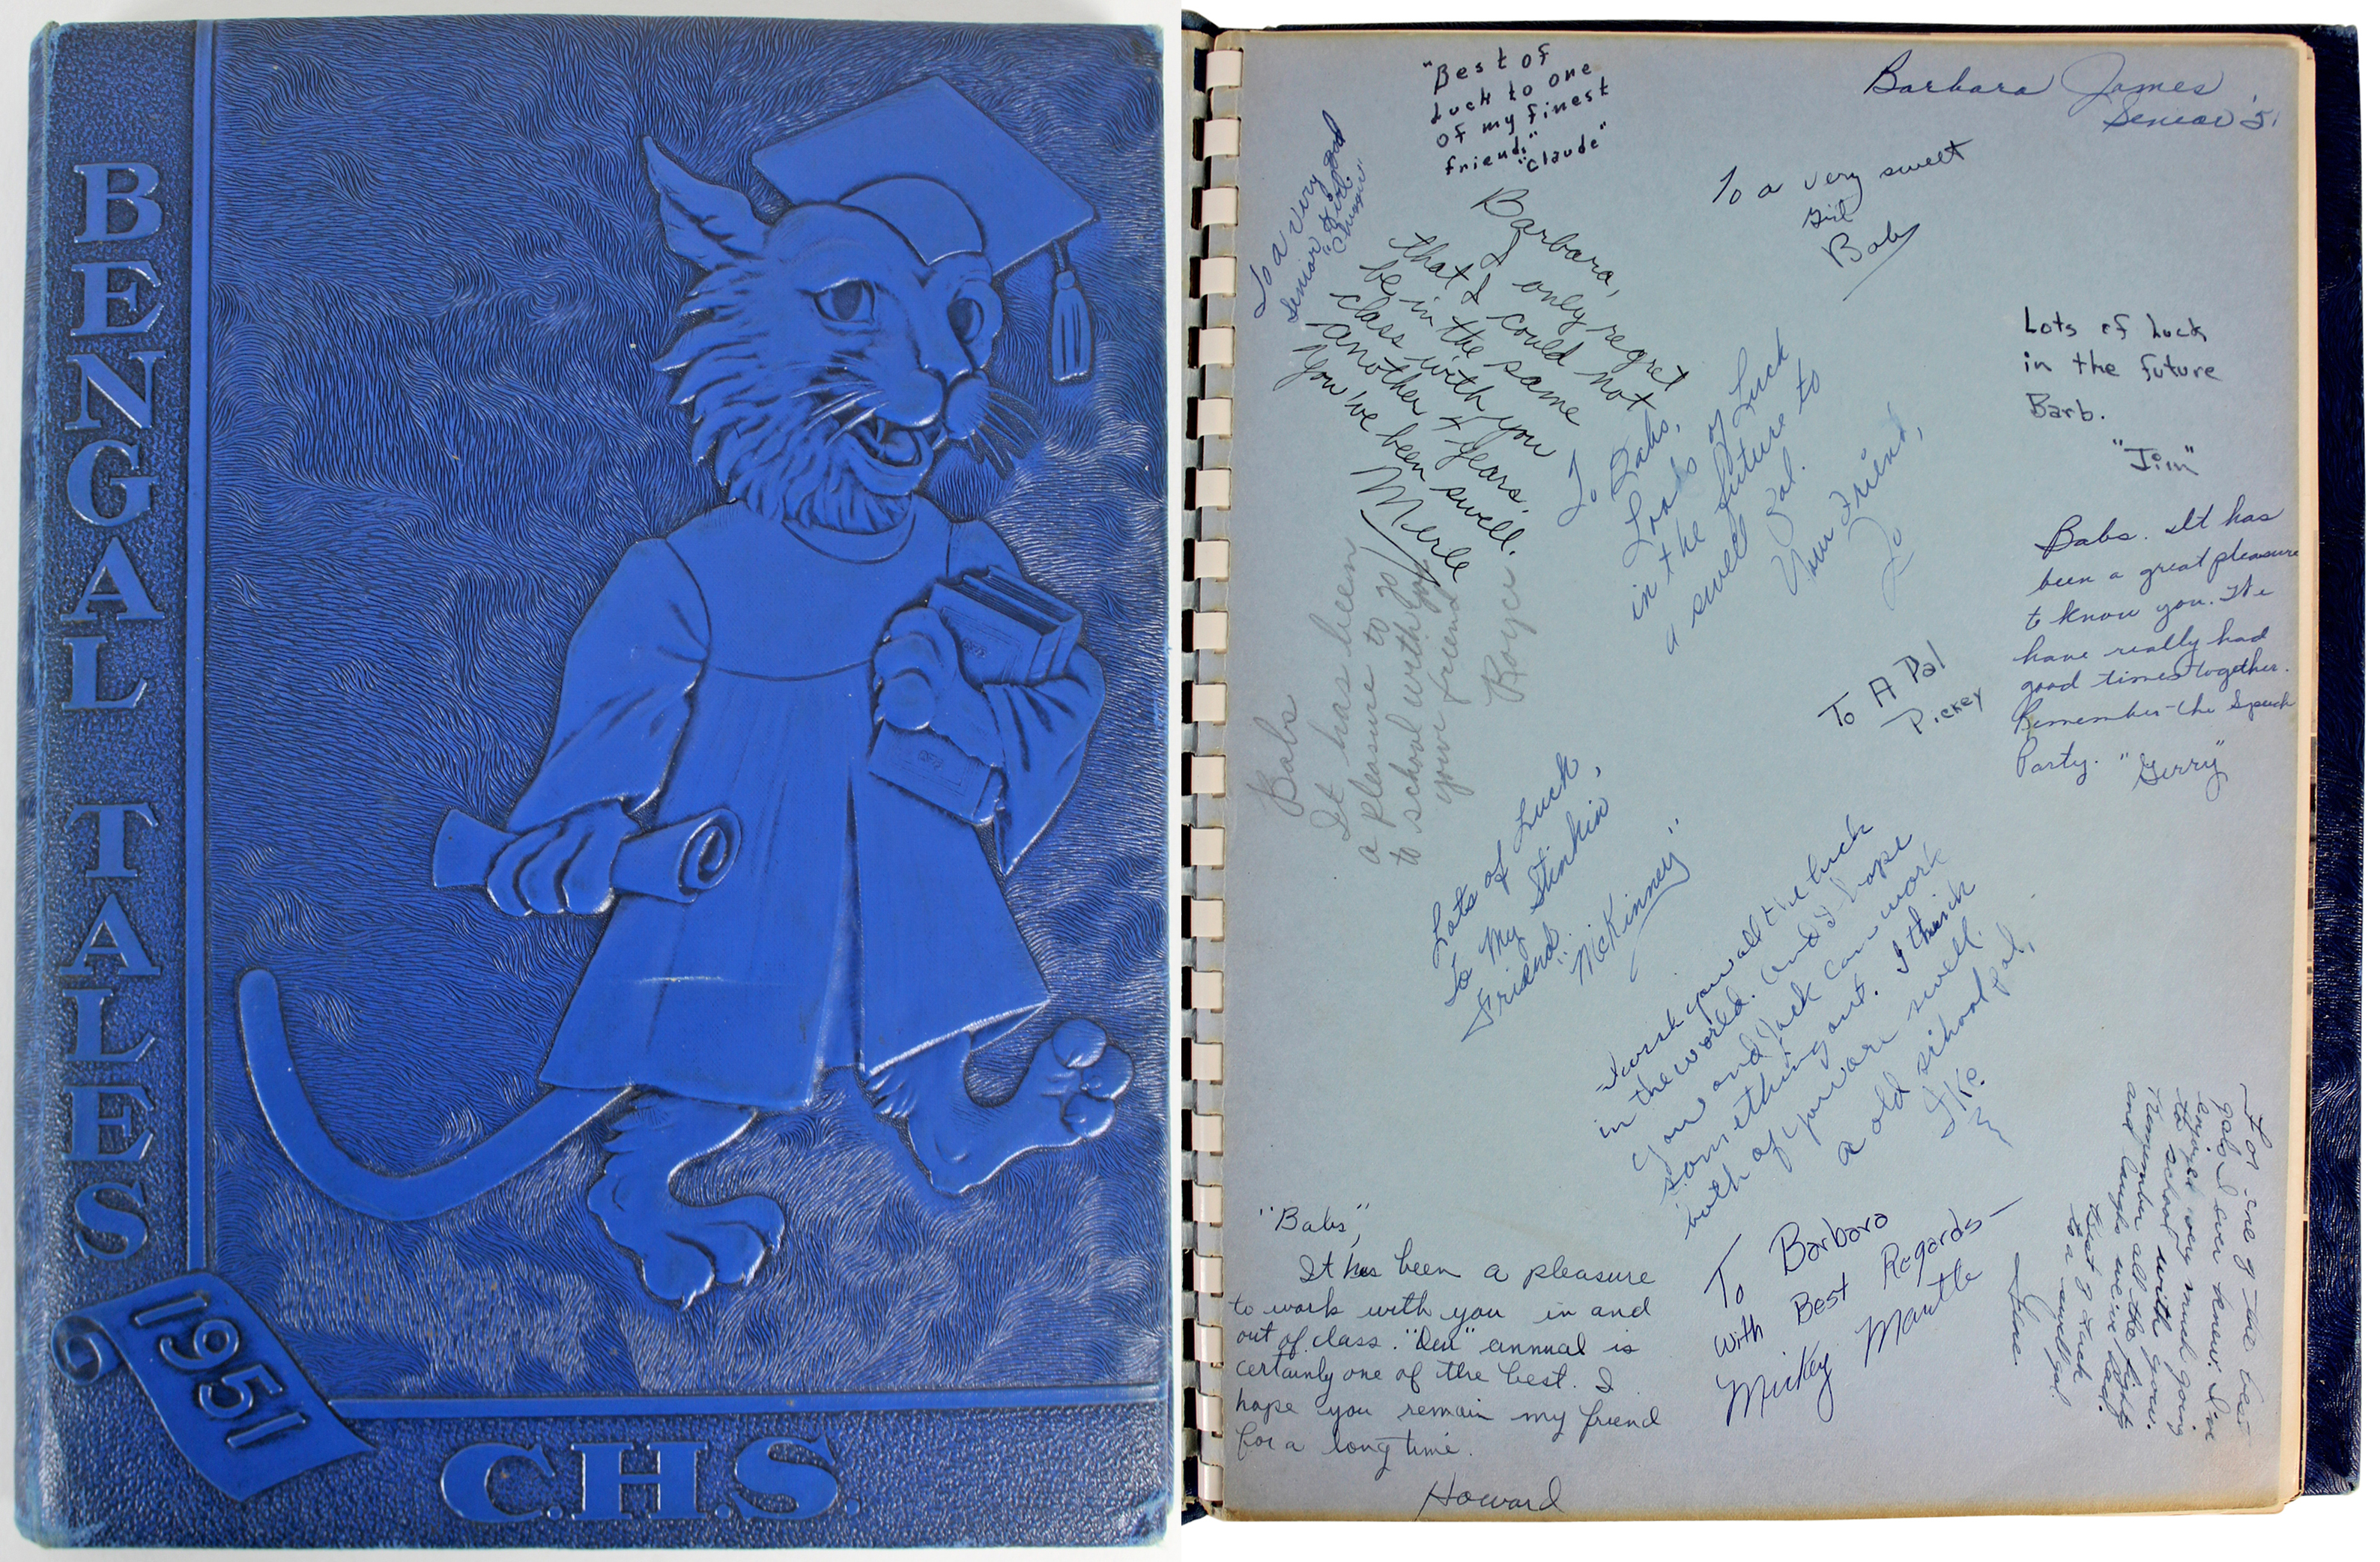 BENGAL TALES
1951
C.H.S.
"Best of
Luck to one
of my finest
friends"
"Claude"
Barbara James
Senior '51
To a very good
Senior Girl
To a very sweet
Girl
Bob
Barbara,
I only regret
that I could not
be in the same
class with you
another 4 years.
You've been swell.
Merle
Lots of Luck
in the future
Barb.
"Jim"
To Babs,
Loads of Luck
in the future to
a swell Pal.
Your Friend,
Jo
Babs. It has
been a great pleasure
to know you. We
have really had
good times together.
Remember the Speech
Party. "Gerry"
Babs
It has been
a pleasure to go
to school with you
your friend
Royce
To A Pal
Pickey
Lots of Luck,
To My Stinkin
Friend.
"McKinney"
I wish you all the luck
in the world. And I hope
you and Jack can work
something out. I think
both of you are swell.
a old school pal,
Ike
"Babs",
It has been a pleasure
to work with you in and
out of class. "Our" annual is
certainly one of the best. I
hope you remain my friend
for a long time.
Howard
To Barbara
With Best Regards—
Mickey Mantle
For one of the best
gals I ever knew. I've
enjoyed very much going
to school with you.
Remember all the fights
and laughs we've had.
Best of Luck
to a swell gal.